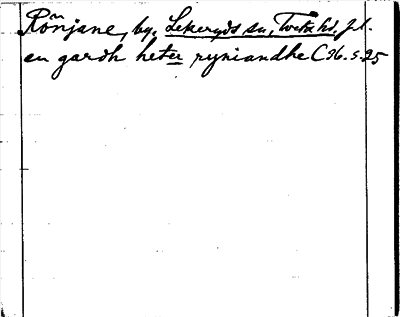 Rönjane, by, Lekeryds sn, Tveta hd, J. l.
en gardh heter ryniandhe C 96. s. 25